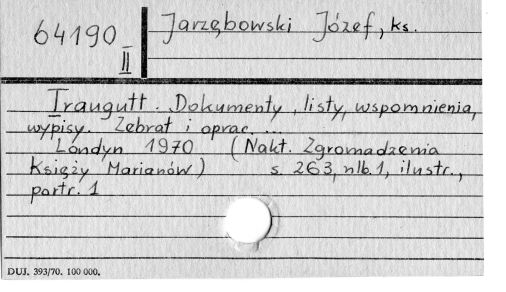 64190
II
Jarzębowski Józef, ks.
Traugutt. Dokumenty, listy, wspomnienia,
wypisy. Zebrał i oprac. ...
Londyn 1970 (Nakł. Zgromadzenia
Księży Marianów) s. 263, nlb. 1, ilustr.,
portr. 1
DUJ. 393/70. 100 000.